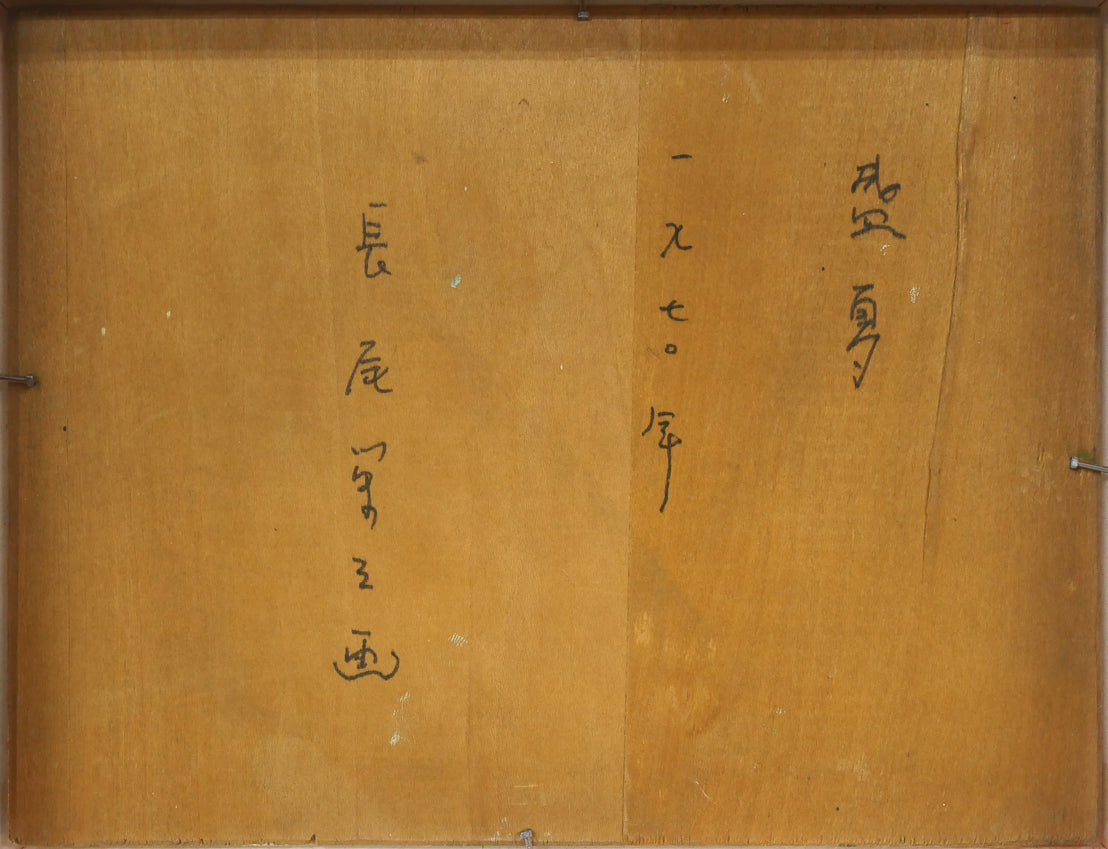 盛夏
一九七〇年
長尾第三画